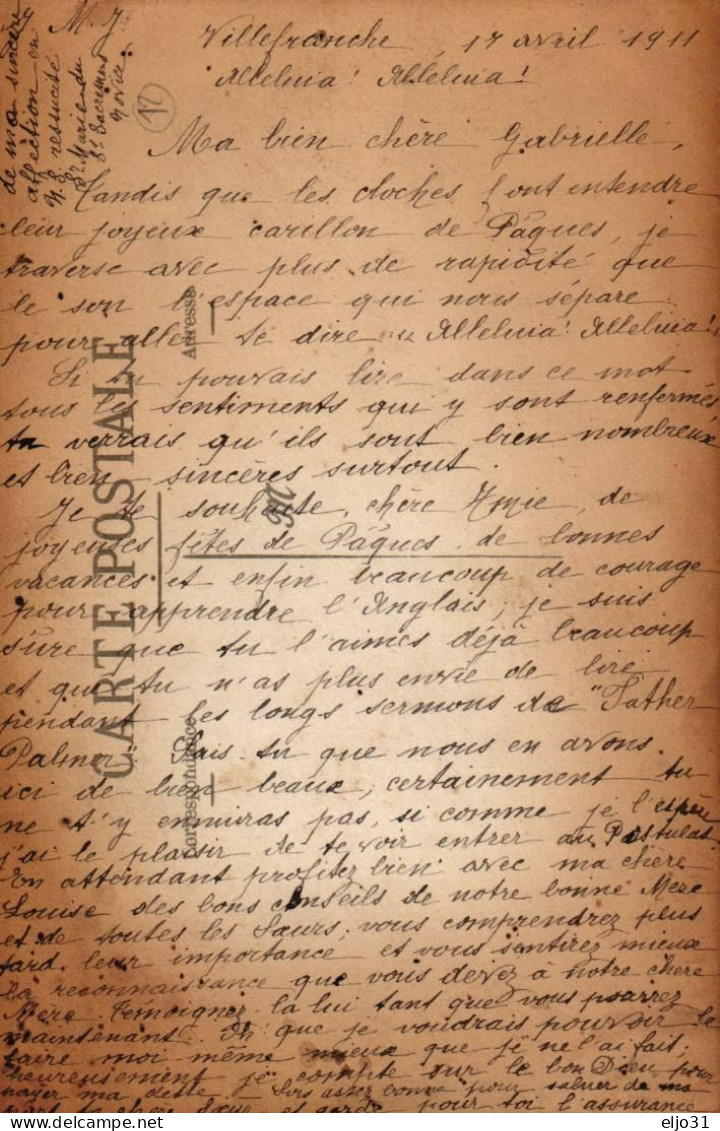 M. J.
Villefranche, 17 avril 1911
Alleluia! Alleluia!
Ma bien chère Gabrielle,
Tandis que les cloches font entendre
leur joyeux carillon de Pâques, je
traverse avec plus de rapidité que
le son l'espace qui nous sépare
pour aller te dire : Alleluia! Alleluia!
Si tu pouvais lire dans ce mot
tous les sentiments qui y sont renfermés
tu verrais qu'ils sont bien nombreux
et bien sincères surtout.
Je te souhaite, chère Amie, de
joyeuses fêtes de Pâques, de bonnes
vacances et enfin beaucoup de courage
pour apprendre l'Anglais, je suis
sûre que tu l'aimes déjà beaucoup
et que tu n'as plus envie de lire
pendant les longs sermons de "Father
Palmer. Sais-tu que nous en avons
ici de bien beaux, certainement tu
ne t'y ennuiras pas, si comme je l'espère
j'ai le plaisir de te voir entrer au Postulat.
En attendant profitez bien avec ma chère
Louise des bons conseils de notre bonne Mère
et de toutes les Sœurs; vous comprendrez plus
tard leur importance et vous sentirez mieux
la reconnaissance que vous devez à notre chère
Mère. Témoignez la lui tant que vous pourrez
maintenant. Oh que je voudrais pouvoir le
faire moi même mieux que je ne l'ai fait;
heureusement je compte sur le bon Dieu pour
payer ma dette. Sois assez bonne pour saluer de ma
part ta chère Sœur et garde pour toi l'assurance
de ma sincère
affection en
N. S. ressucité
Sr Marie du
St Sacrement
novice
12
CARTE POSTALE
Correspondance
Adresse
M
eljo31